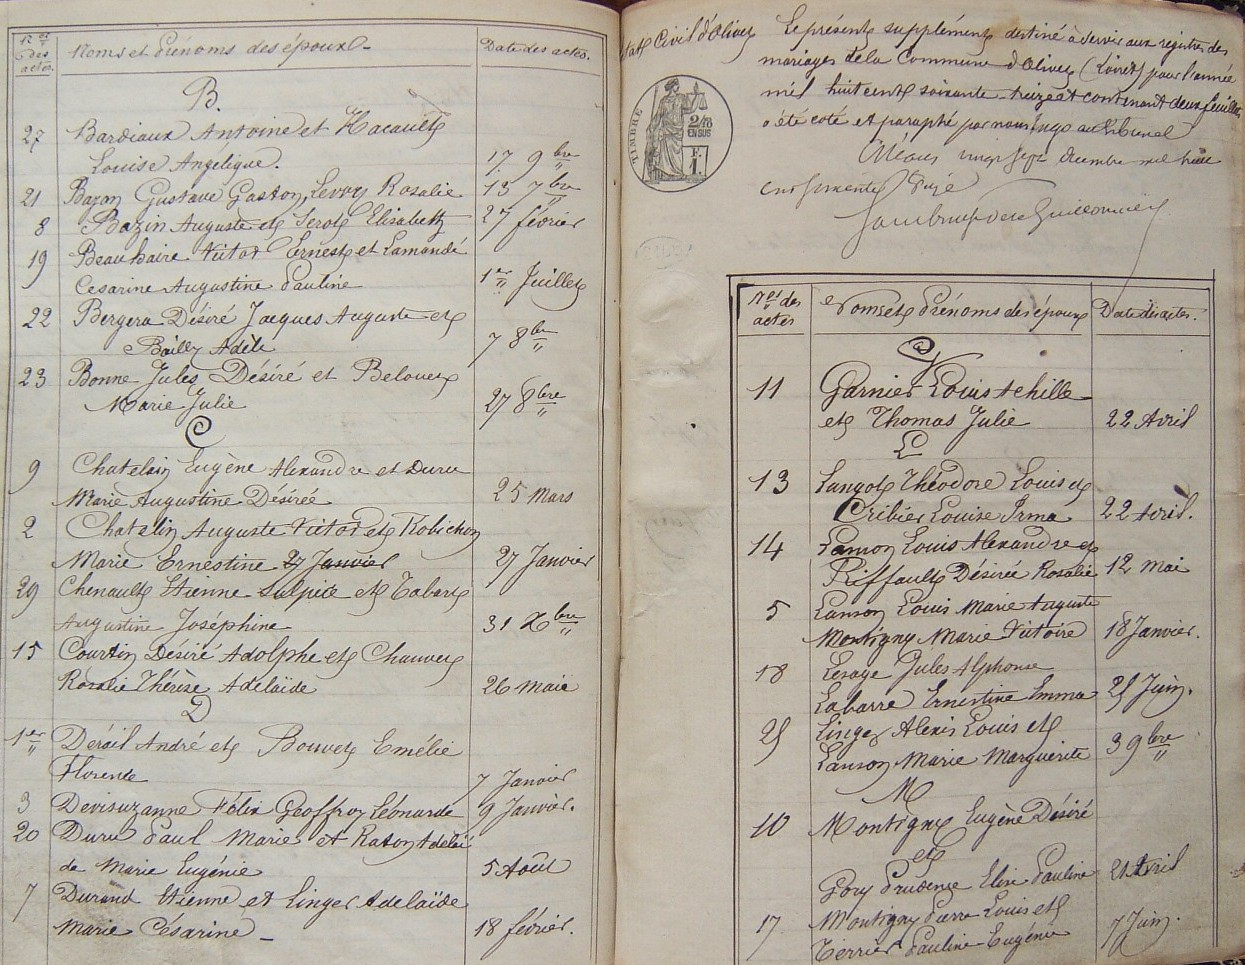 Nos des actes.
Noms et Prénoms des époux
Date des actes.
B.
27 Bardiaux Antoine et Hacault
Louise Angélique. 17 9bre
21 Bazon Gustave Gaston, Leroy Rosalie 13 7bre
8 Bazin Auguste et Serot Elisabeth 27 février
19 Beauhaire Victor Ernest et Lamandé
Césarine Augustine Pauline 1er Juillet
22 Bergera Désiré Jacques Auguste et
Bailly Adèle 7 8bre
23 Bonne Jules Désiré et Belouet
Marie Julie 27 8bre
C
9 Chatelain Eugène Alexandre et Duru
Marie Augustine Désirée 25 Mars
2 Chatelin Auguste Victor et Robichon
Marie Ernestine 27 Janvier 27 Janvier
29 Chenault Etienne Sulpice et Tabart
Augustine Joséphine 31 Xbre
15 Courtin Désiré Adolphe et Chauvet
Rosalie Thérèse Adelaïde 26 Mai
D
1er André et Bouvet Emélie
Florence 7 Janvier
3 Devisuzanne Félix Geoffroy Léonarde 9 Janvier.
20 Duru Paul Marie et Raton Adelaï
de Marie Eugénie 5 Août
7 Durand Etienne et Linger Adelaïde
Marie Césarine 18 février.
Etat Civil d'Olivet
Le présent supplément destiné à servir aux registres des
mariages de la Commune d'Olivet (Loiret) pour l'année
mil huit cent soixante-treize et contenant deux feuilles
a été coté et paraphé par nous, juge au tribunal
vingt sept décembre mil huit
cent soixante
TIMBRE
2/10
EN SUS
F.
1.
Nos des actes
Noms et Prénoms des époux
Date des actes.
G
11 Garnier Louis Achille
et Thomas Julie 22 Avril
L
13 Langot Théodore Louis et
Cribier Louise Irma 22 Avril.
14 Lanson Louis Alexandre et
Riffault Désirée Rosalie 12 Mai
5 Lanson Louis Marie Auguste
Montigny Marie Victoire 18 Janvier.
18 Lesage Jules Alphonse
Labarre Ernestine Emma 25 Juin.
25 Linger Alexis Louis et
Lanson Marie Marguerite 3 9bre
M
10 Montigny Eugène Désiré
et
Gory Prudence Elise Pauline 21 Avril
17 Montigny Pierre Louis et
Terrier Pauline Eugénie 7 Juin.